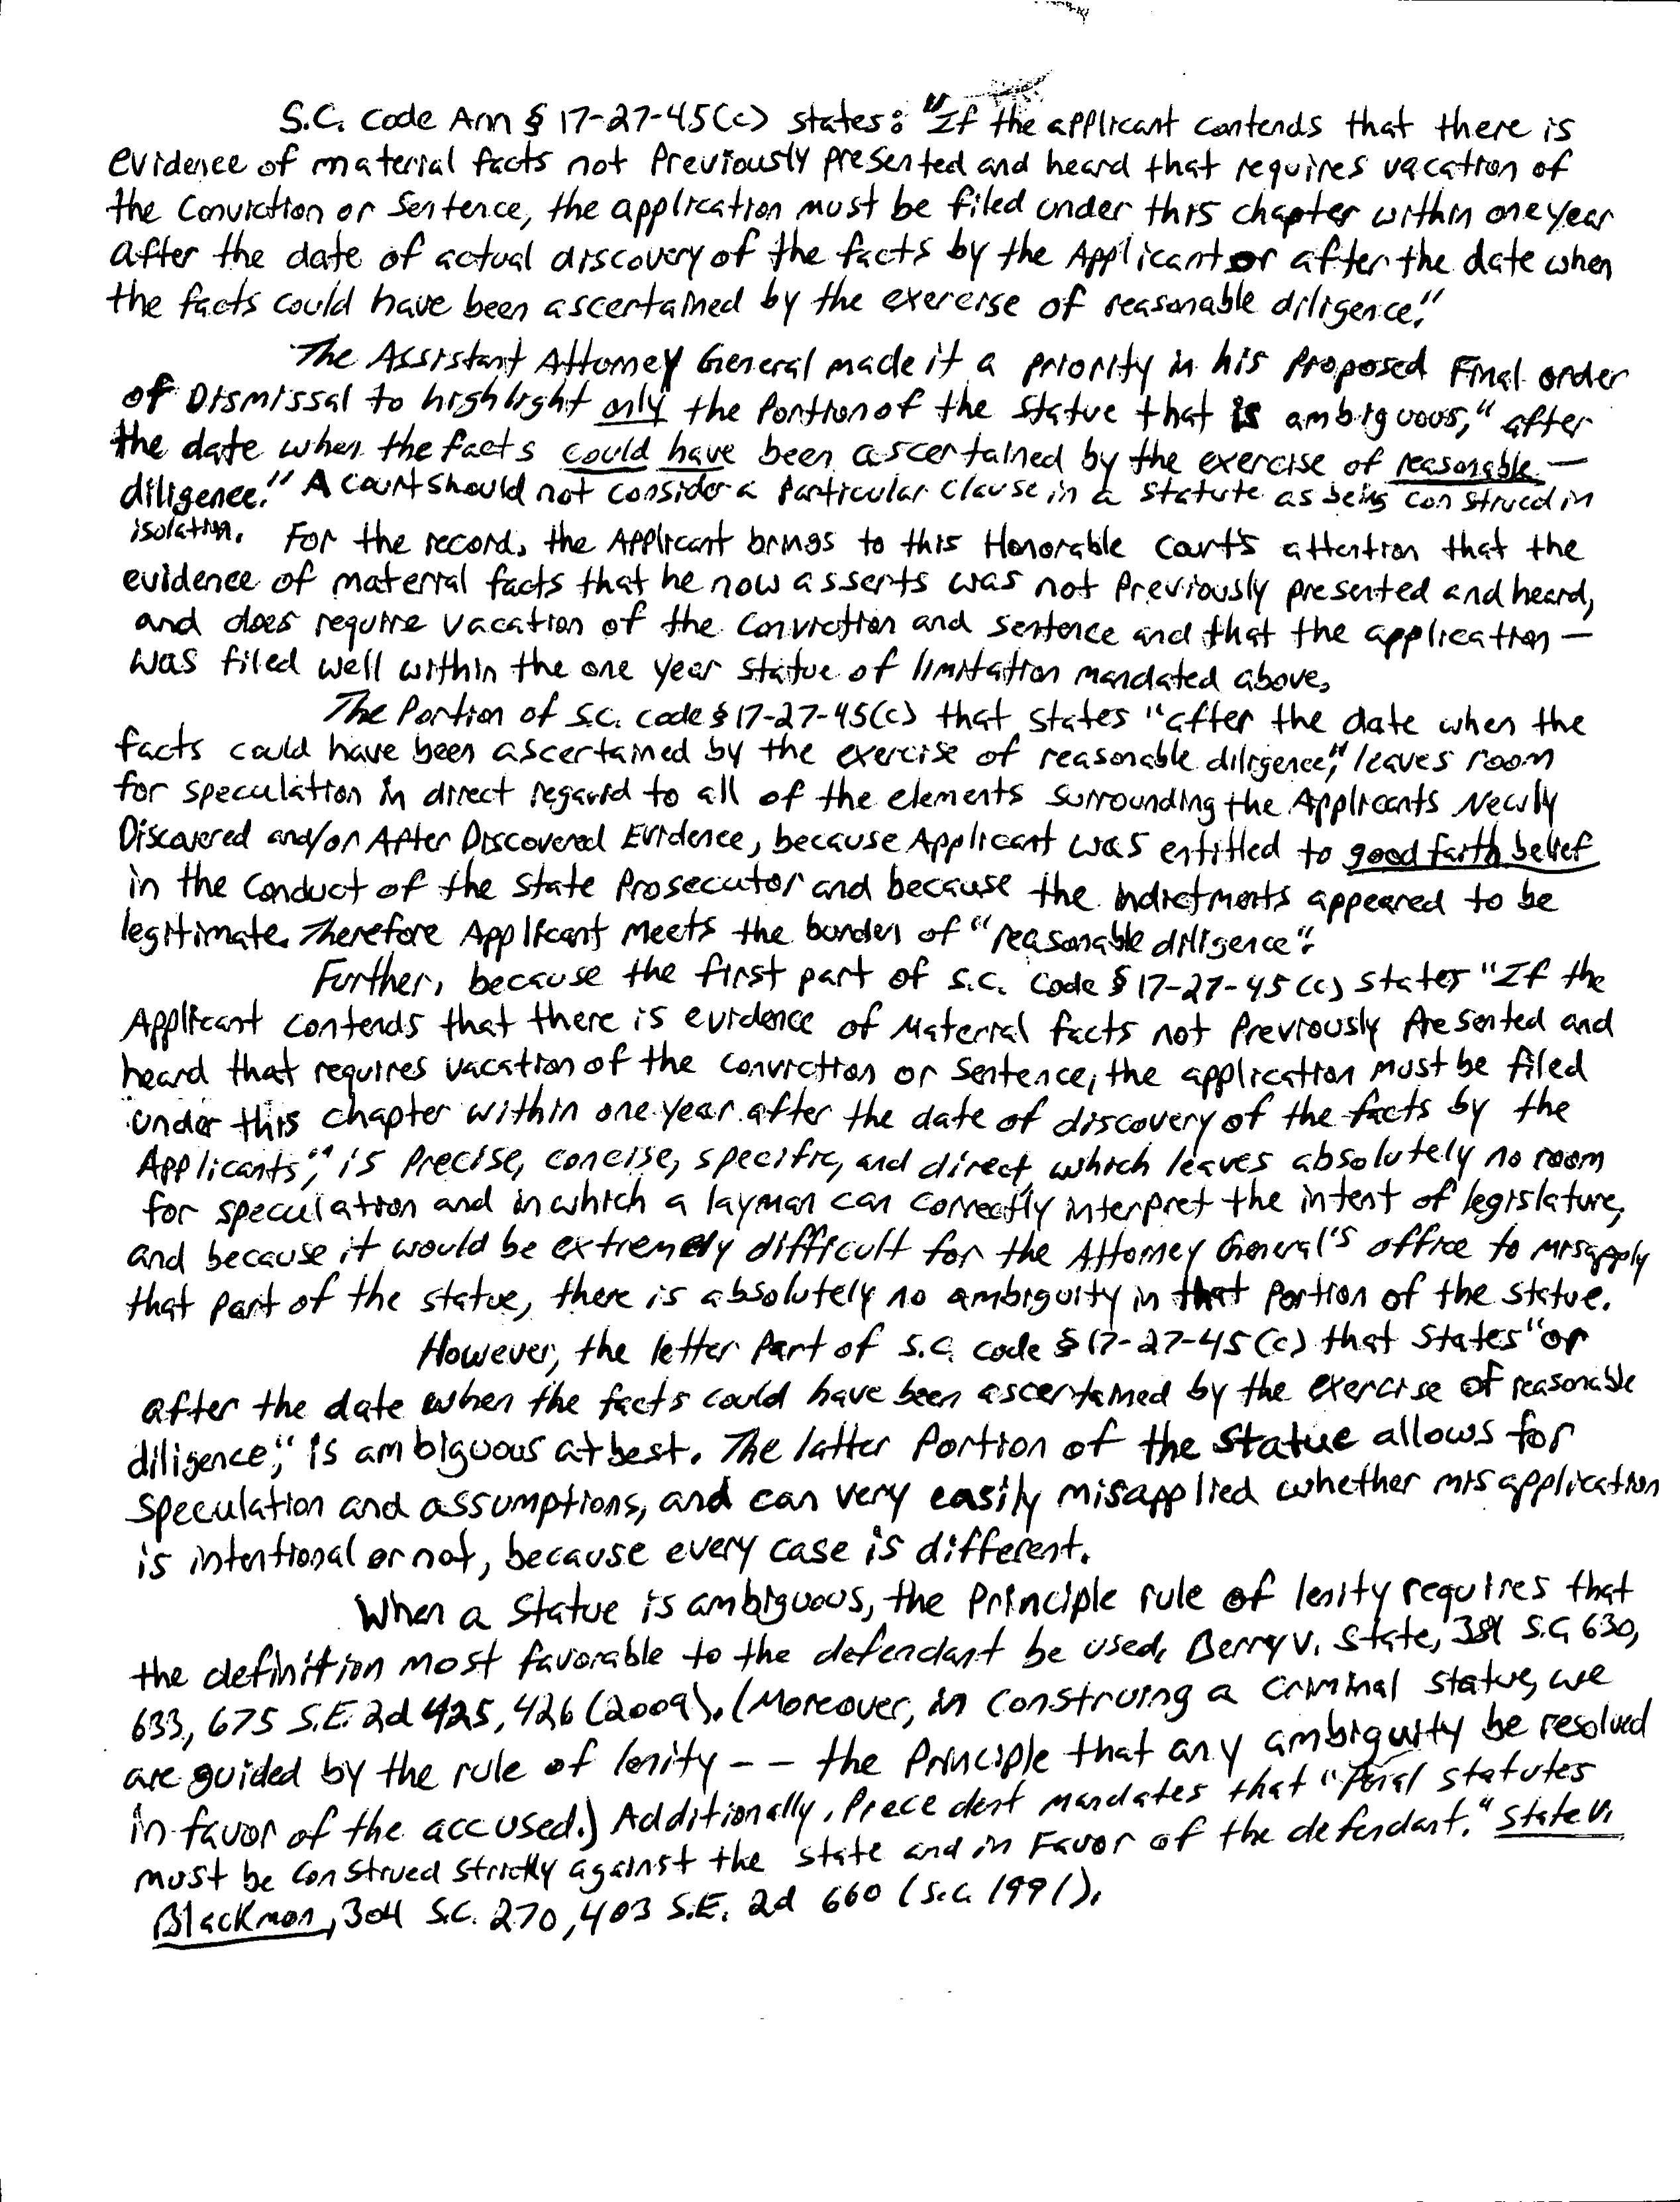 S.C. Code Ann § 17-27-45(c) states: "If the applicant contends that there is
evidence of material facts not Previously presented and heard that requires vacation of
the Conviction or Sentence, the application must be filed under this chapter within one year
after the date of actual discovery of the facts by the Applicant or after the date when
the facts could have been ascertained by the exercise of reasonable diligence."
The Assistant Attorney General made it a priority in his Proposed Final order
of Dismissal to highlight only the Portion of the statue that is ambiguous," after
the date when the facts could have been ascertained by the exercise of reasonable —
diligence." A court should not consider a Particular Clause in a statute as being construed in
isolation. For the record, the Applicant brings to this Honorable Court's attention that the
evidence of material facts that he now asserts was not Previously presented and heard,
and does require vacation of the Conviction and sentence and that the application —
was filed well within the one year statue of limitation mandated above,
The Portion of S.C. code § 17-27-45(c) that states "after the date when the
facts could have been ascertained by the exercise of reasonable diligence," leaves room
for speculation in direct regard to all of the elements surrounding the Applicants Newly
Discovered and/or After Discovered Evidence, because Applicant was entitled to good faith belief
in the Conduct of the State Prosecutor and because the indictments appeared to be
legitimate. Therefore Applicant Meets the burden of "reasonable diligence".
Further, because the first part of S.C. Code § 17-27-45 (c) states "If the
Applicant contends that there is evidence of Material facts not Previously Presented and
heard that requires vacation of the conviction or sentence, the application must be filed
under this chapter within one year after the date of discovery of the facts by the
Applicants", is Precise, concise, specific, and direct, which leaves absolutely no room
for speculation and in which a layman can correctly interpret the intent of legislature,
and because it would be extremely difficult for the Attorney General's office to misapply
that part of the statue, there is absolutely no ambiguity in that Portion of the statue.
However, the letter Part of S.C. code § 17-27-45 (c) that states "or
after the date when the facts could have been ascertained by the exercise of reasonable
diligence," is ambiguous at best. The latter Portion of the statue allows for
speculation and assumptions, and can very easily misapplied whether misapplication
is intentional or not, because every case is different.
When a statue is ambiguous, the Principle rule of lenity requires that
the definition most favorable to the defendant be used, Berry v. State, 381 S.C. 630,
633, 675 S.E. 2d 425, 426 (2009). (Moreover, in construing a criminal statue, we
are guided by the rule of lenity - - the Principle that any ambiguity be resolved
in favor of the accused.) Additionally, Precedent mandates that "Penal statutes
must be construed strictly against the state and in Favor of the defendant." State v.
Blackmon, 304 S.C. 270, 403 S.E. 2d 660 (S.C. 1991).